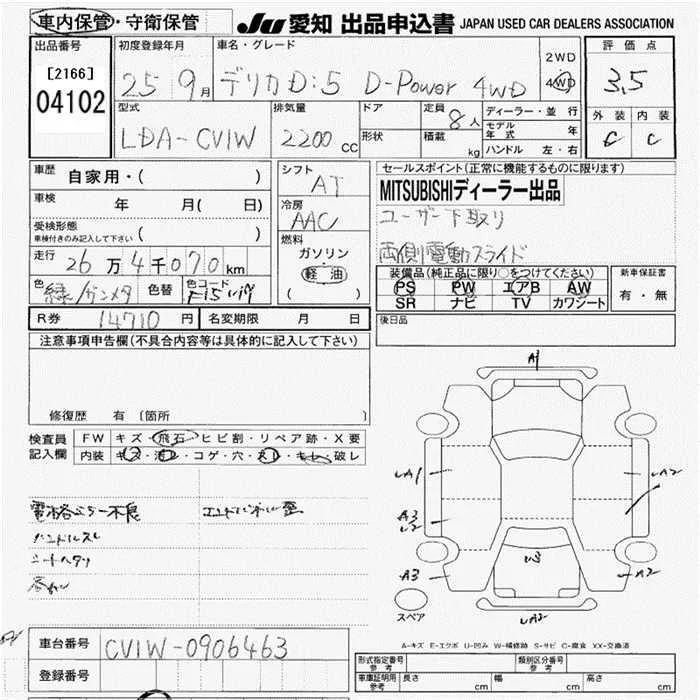 車内保管・守衛保管 JU 愛知 出品申込書 JAPAN USED CAR DEALERS ASSOCIATION
出品番号 初度登録年月 車名・グレード 2WD 評価点
[2166] 25 9月 デリカD:5 D-Power 4WD 4WD 3.5
04102 型式 排気量 ドア 定員 8人 ディーラー・並行 外装 内装
LDA-CV1W 2200 CC 形状 積載 kg モデル年式 年 C C
ハンドル 左・右
車歴 自家用・( ) シフト AT セールスポイント(正常に機能するものに限ります)
MITSUBISHIディーラー出品
車検 年 月( 日) 冷房 AAC ユーザー下取り
受検形態 ( )
車検付きのみ記入して下さい
燃料 両側電動スライド
走行 26万4千070km ガソリン 装備品(純正品に限り○をつけてください) 新車保証書
軽油 PS PW エアB AW 有・無
色 緑/ガンメタ 色替 色コード ( ) SR ナビ TV カワシート
R券 14710円 名変期限 月 日 後日品
注意事項申告欄(不具合内容等は具体的に記入して下さい)
修復歴 有 〔箇所
検査員 FW キズ・飛石・ヒビ割・リペア跡・X要
記入欄 内装 キズ・汚レ・コゲ・穴・スレ・キレ・破レ
A1
A1 A2
A3
A3 A2
電格ミラー不良
ハンドルスレ
シートヘタリ
スペア
A-キズ E-エクボ U-凹み W-補修跡 S-サビ C-腐食 XX-交換済
車台番号 CV1W-0906463
登録番号
形式指定番号 参考 類別区分番号 参考
車庫証明用 参考 長さ cm 幅 cm 高さ cm